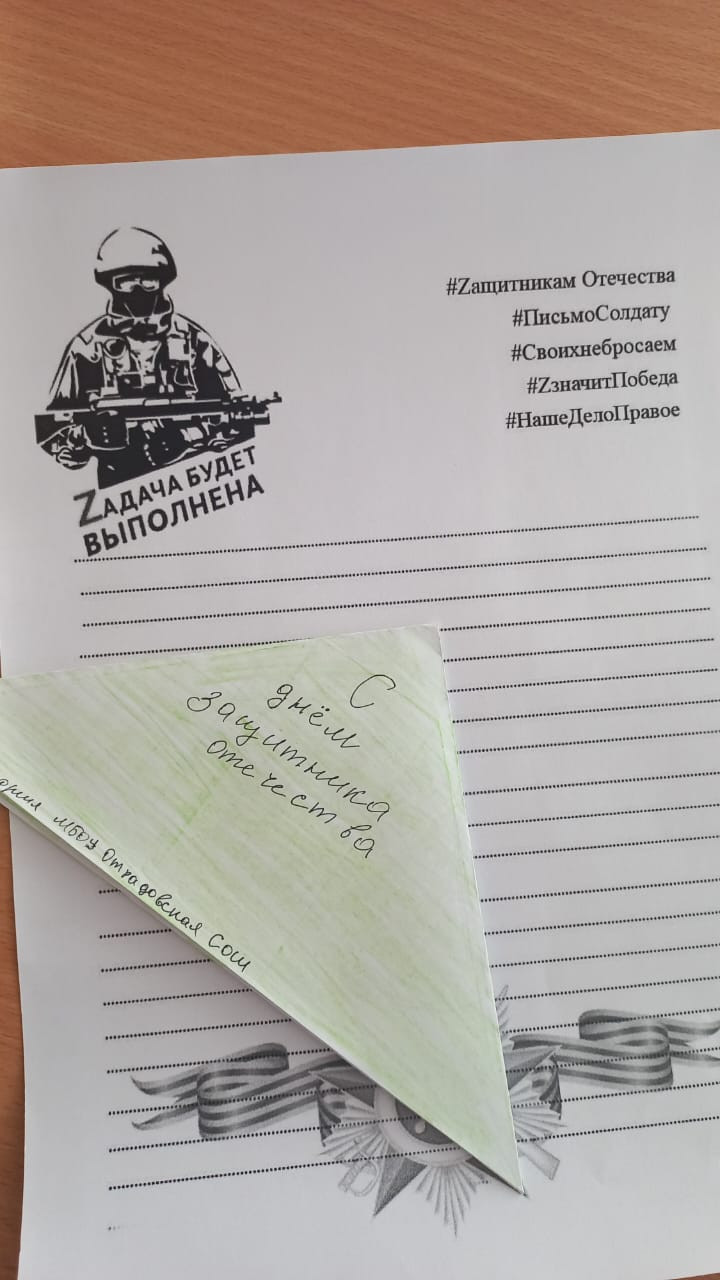 #Zащитникам Отечества
#ПисьмоСолдату
#Своихнебросаем
#ZзначитПобеда
#НашеДелоПравое
ZАДАЧА БУДЕТ
ВЫПОЛНЕНА
С
днём
Защитника
отечества
МБОУ Отрадовская СОШ